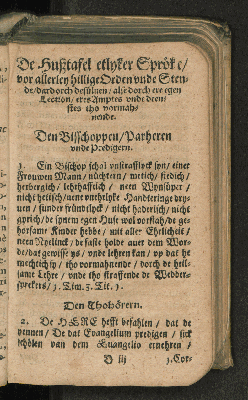 De Hußtafel etlyker Spröke/
vor allerley hillige Orden vnde Sten-
de/ dardorch desülven/ alse dorch ere egen
Lection/ eres Amptes vnde deen-
stes tho vormah-
nende.
Den Bisschoppen/ Parheren
vnde Predigern.
1. Ein Bischop schal vnstrafflick syn/ einer
Frouwen Mann/ nüchtern/ metich/ sedich/
herbergich/ lehrhafftich/ neen Wynsüper/
nicht hetisch/ neene vnehrlyke Handteringe dry-
uen/ sunder fründtlyck/ nicht haderich/ nicht
gyrich/ de synem egen Huse wol vorstah/ de ge-
horsame Kinder hebbe/ mit aller Ehrlicheit/
neen Nyelinck/ de faste holde auer dem Wor-
de/ dat gewisse ys/ vnde lehren kan/ vp dat he
mechtich sy/ tho vormahnende/ dorch de heil-
same Lehre/ vnde tho straffende de Wedder-
sprekers/ 1. Tim. 3. Tit. 1.
Den Thohörern.
2. De HERE hefft befahlen/ dat de
yennen/ De dat Evangelium predigen/ sick
schölen van dem Euangelio ernehren/
D iij 1. Cor-